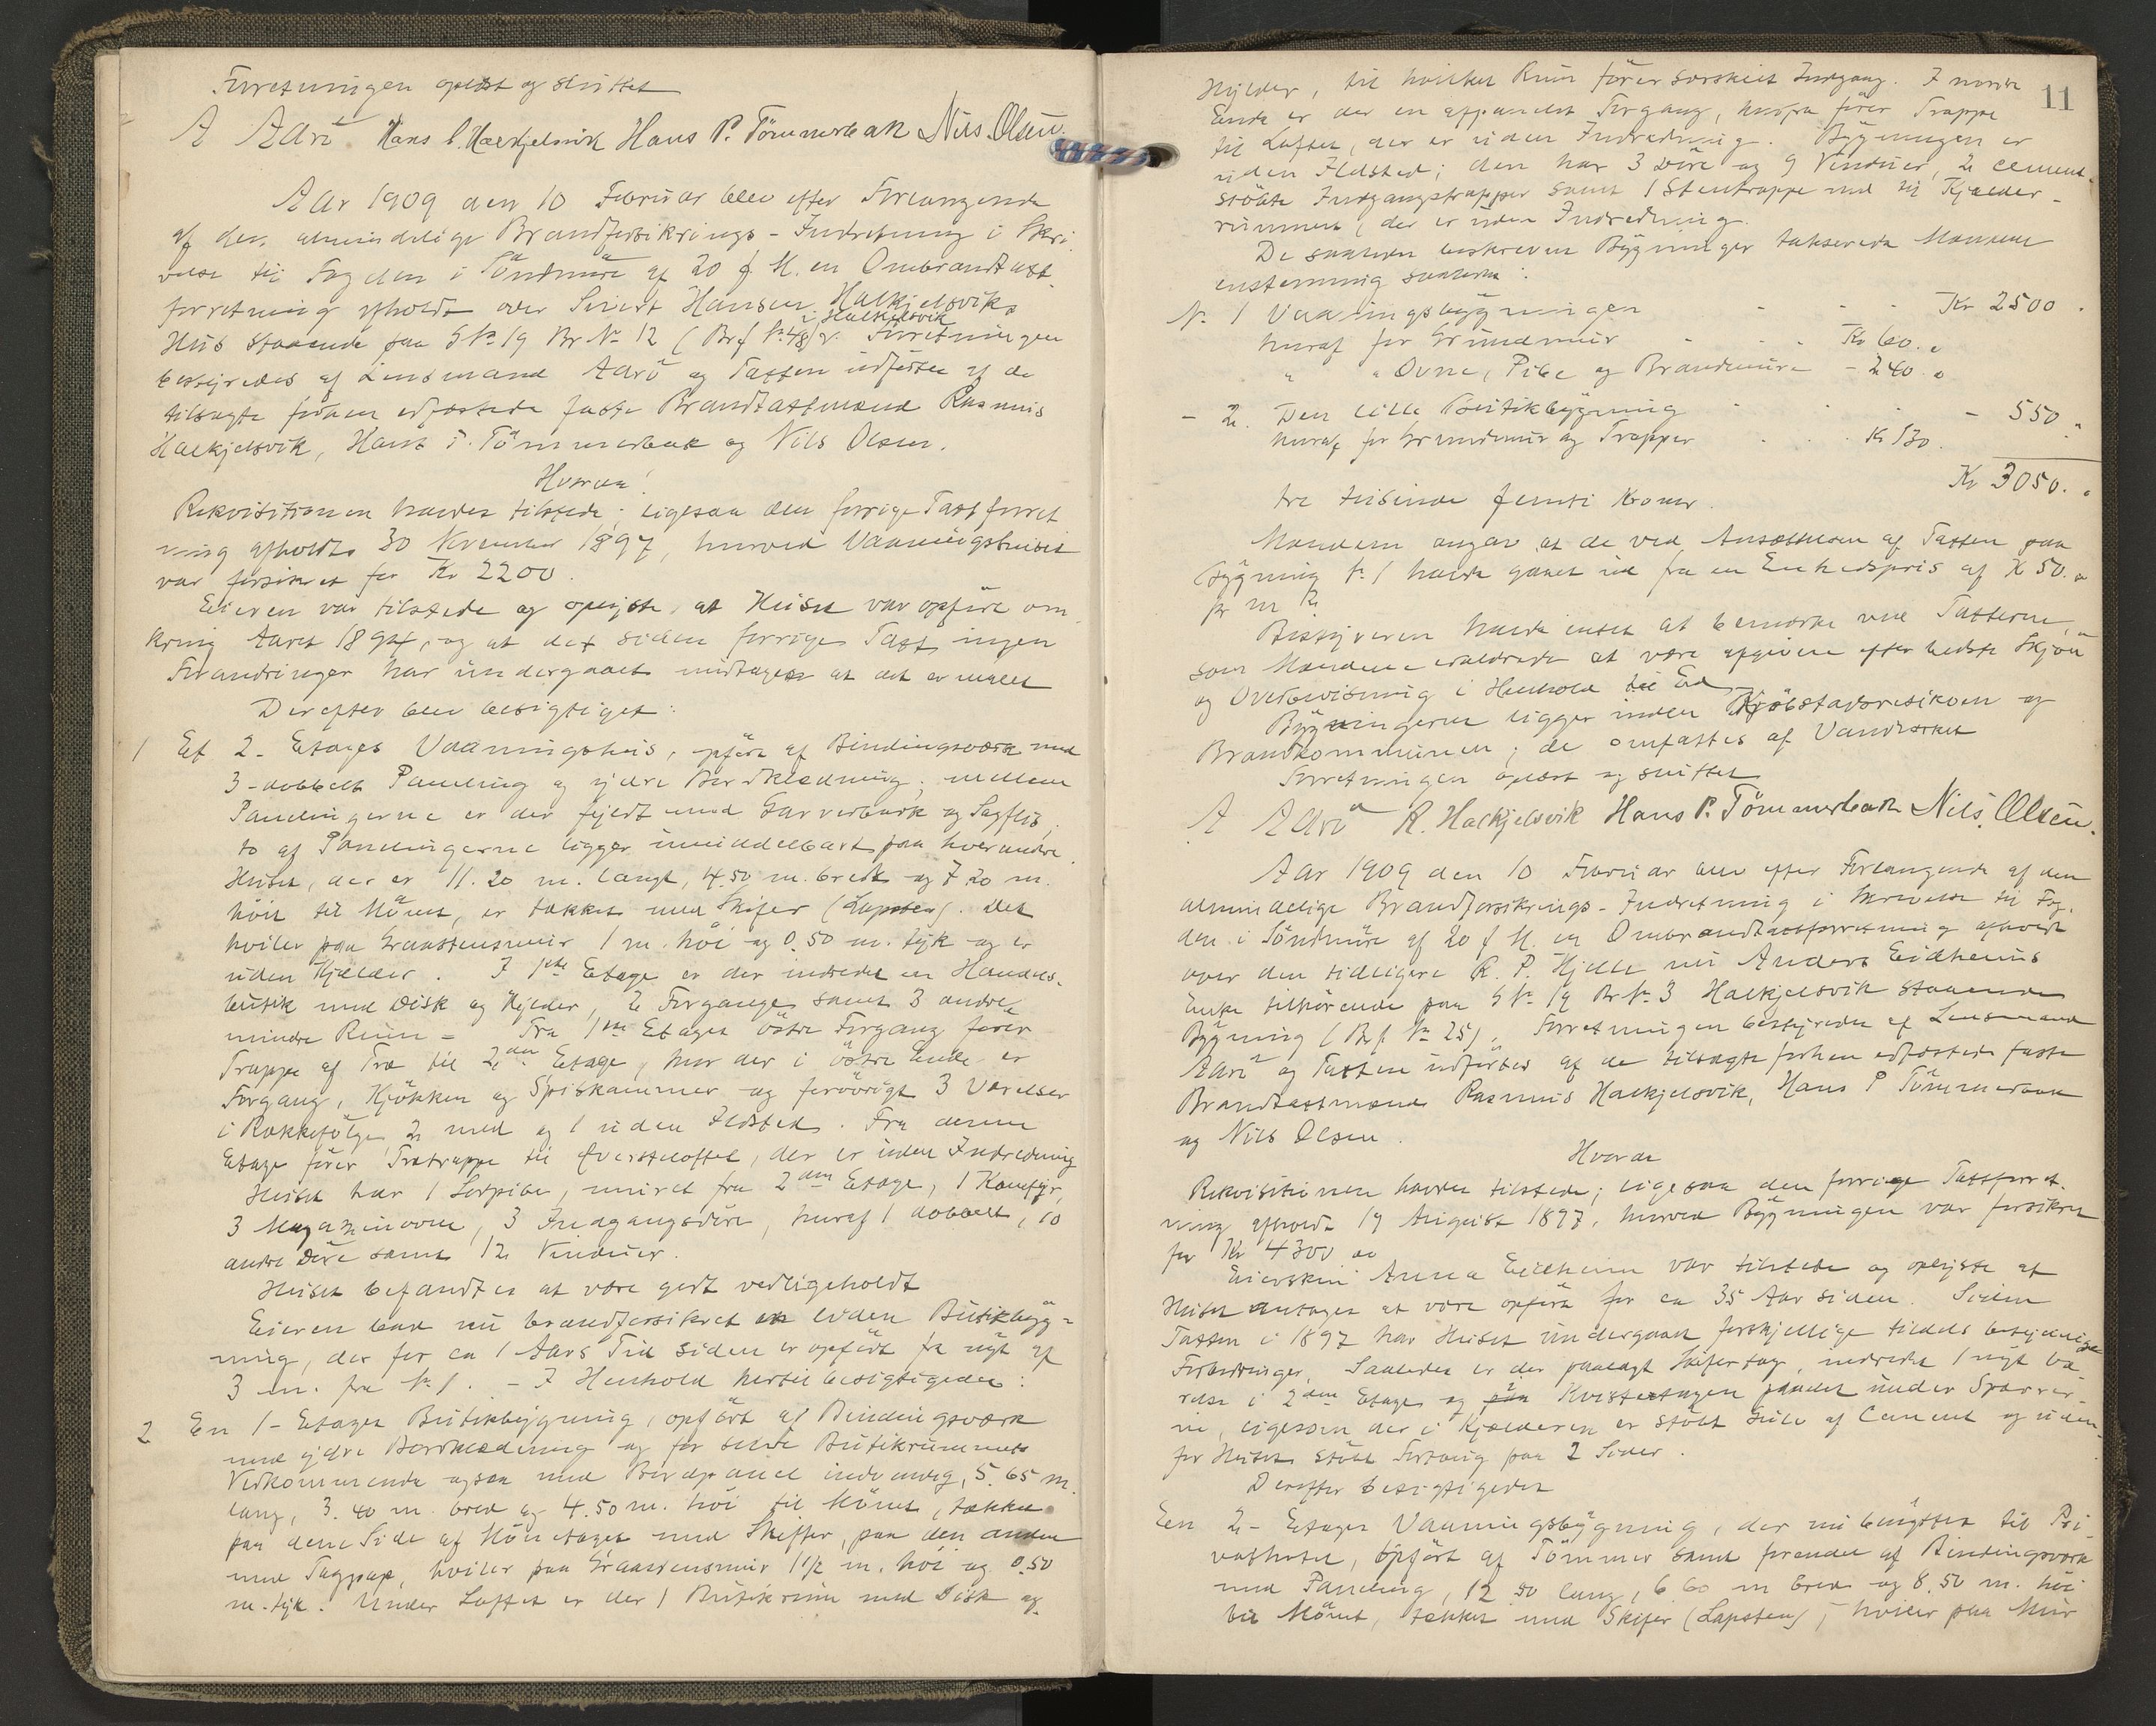 Forretningen oplæst og sluttet
A Adrö Hans C. Halkjelsvik Hans P. Tömmerbak Nils Olsen.
Aar 1909 den 10 Februar blev efter Forlangende
af den almindelige Brandforsikrings-Indretning i Skri-
velse til Fogden i Söndmöre af 20 f. M. en Ombrandtaxt-
forretning afholdt over Sivert Hansen Halkjelsviks
i Halkjelsvik
Hus staaende paa G No 19 Br. No 12 (Brf. No 48). Forretningen
bestyredes af Lensmand Adrö og Taxten udförtes af de
tilsagte forhen edfæstede faste Brandtaxtmænd Rasmus
Halkjelsvik, Hans P. Tömmerbak og Nils Olsen.
Hvorda!
Rekvisitionen havdes tilstede; ligesaa den forrige Taxtforret
ning afholdt 30 November 1897, hvorved Vaaningshuset
var forsikret for Kr 2200.
Eieren var tilstede og oplyste, at Huset var opfört om-
kring Aaret 1894, og at det siden forrige Taxt ingen
Forandringer har undergaaet undtagen at det er malet
Derefter blev besigtiget:
1 Et 2-Etages Vaaningshus, opfört af Bindingsværk med
3-dobbelt Paneling og ydre Bordklædning; mellem
Panelingerne er der fyldt med Garverbark og Sagflis,
to af Panelingerne ligger umiddelbart paa hverandre.
Huset, der er 11.20 m. langt, 4.50 m. bredt og 7.20 m.
höit til Mönet, er tækket med Skifer (Lapsten). Det
hviler paa Graastensmur 1 m. höi og 0.50 m. tyk og er
uden Kjælder. I 1ste Etage er der indredet en Handels-
butik med Disk og Hylder, 2 Forgange samt 3 andre
mindre Rum – Fra 1ste Etages östre Forgang förer
Trappe af Træ til 2den Etage, hvor der i östre Ende er
Forgang, Kjökken og Spiskammer og forövrigt 3 Værelser
i Rækkefölge, 2 med og 1 uden Ildsted. Fra denne
Etage förer Trætrappe til Överstelofte, der er uden Indredning
Huset har 1 Lodpibe, muret fra 2den Etage, 1 Komfyr,
3 Magazinovne, 3 Indgangsdöre, hvoraf 1 dobbelt, 10
andre Döre samt 12 Vinduer.
Huset befandtes at være godt vedligeholdt
Eieren bad nu brandforsikret en liden Butikbyg-
ning, der for ca 1 Aars Tid siden er opfört fra nyt af
3 m. fra No 1. – I Henhold hertil besigtigedes:
2 En 1-Etages Butikbygning, opfört af Bindingsværk
med ydre Bordklædning og for selve Butikrummets
Vedkommende ogsaa med Bordpanel indvendig, 5.65 m.
lang, 3.40 m. bred og 4.50 m. höi til Mönet, tækket
paa dene Side af Möntaget med Skiffer, paa den anden
med Tagpap, hviler paa Graastensmur 1 1/2 m. höi og 0.50
m. tyk. Under Loftet er der 1 Butikrum med Disk og
11
Hylder, til hvilket Rum förer særskilt Indgang. I nordre
Ende er der en afpanelet Forgang, hvorfra förer Trappe
til Loftet, der er uden Indredning. Bygningen er
uden Ildsted; den har 3 Döre og 9 Vinduer, 2 cement-
stöbte Indgangstrapper samt 1 Stentrappe ned til Kjælder-
rummet, der er uden Indredning.
De saaledes beskrevne Bygninger takserede Mændene
enstemmig saaledes:
No. 1 Vaaningsbygningen - - - Kr 2500.
hvoraf for Grundmur - - - Kr 60. "
" " Ovne, Pibe og Brandmure - 240. "
- 2. Den lille Butikbygning - - - - 550 "
hvoraf for Grundmur og Trapper - - - Kr 130.
Kr 3050. "
tre tusinde femti Kroner.
Mændene angav at de ved Ansættelsen af Taxten paa
Bygning No 1 havde gaaet ud fra en Enhedspris af K 50. "
pr m 2
Bestyreren havde intet at bemærke ved Taxterne,
som Mændene erklærede at være afgivne efter bedste Skjön
og Overbevisning i Henhold til Ed.
Bygningerne ligger inden Kjöbstadsrisikoen og
Brandkommunen; de omfattes af Vandværket
Forretningen oplæst og sluttet
A Adrö R. Halkjelsvik Hans P. Tömmerbak Nils. Olsen.
Aar 1909 den 10 Februar blev efter Forlangende af den
almindelige Brandforsikrings-Indretning i Skrivelse til Fog-
den i Söndmöre af 20 f. M. en Ombrandtaxtforretning afholdt
over den tidligere R. P. Hjelle nu Anders Eidheims
Enke tilhörende paa G No 19 Br. No 3 Halkjelsvik staaende
Bygning (Brf. No 25). Forretningen bestyredes af Lensmand
Adrö og Taxten udförtes af de tilsagte forhen edfæstede faste
Brandtaxtmænd Rasmus Halkjelsvik, Hans P Tömmerbak
og Nils Olsen.
Hvorda
Rekvisitionen havdes tilstede; ligesaa den forrige Taxtforret-
ning afholdt 19 August 1897, hvorved Bygningen var forsikret
for Kr 4300 00
Eierskin Anna Eidheim var tilstede og oplyste at
Huset antages at være opfört for ca 35 Aar siden. Siden
Taxten i 1897 har Huset undergaaet forskjellige tildels betydelige
Forbedringer. Saaledes er der paalagt Skifertag, indredet 1 nyt Væ-
relse i 2den Etage og Kvistetagen panelet under Sparrer-
ne, ligesom der i Kjælderen er stöbt Gulv af Cement og uden-
for Huset stöbt Fortaug paa 2 Sider.
Derefter besigtigedes
Een 2-Etages Vaaningsbygning, der nu benyttes til Pri-
vathotel, opfört af Tömmer samt forenden af Bindingsværk
med Paneling, 12.50 lang, 6.60 m bred og 8.50 m. höi
til Mönet, tækket med Skifer (Lapsten), hviler paa Mur